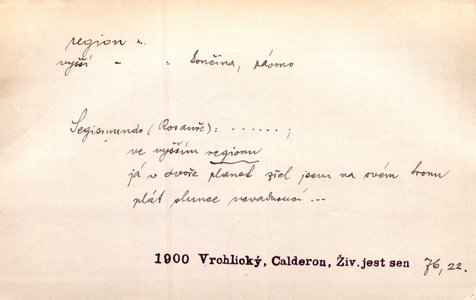 region m.
vyšší - " končina, pásmo
Segismundo (Rosauře): ......;
ve vyšším regionu
já v dvoře planet zřel jsem na svém tronu
plát slunce nevadnoucí ...
1900 Vrchlický, Calderon, Živ.jest sen 76, 22.